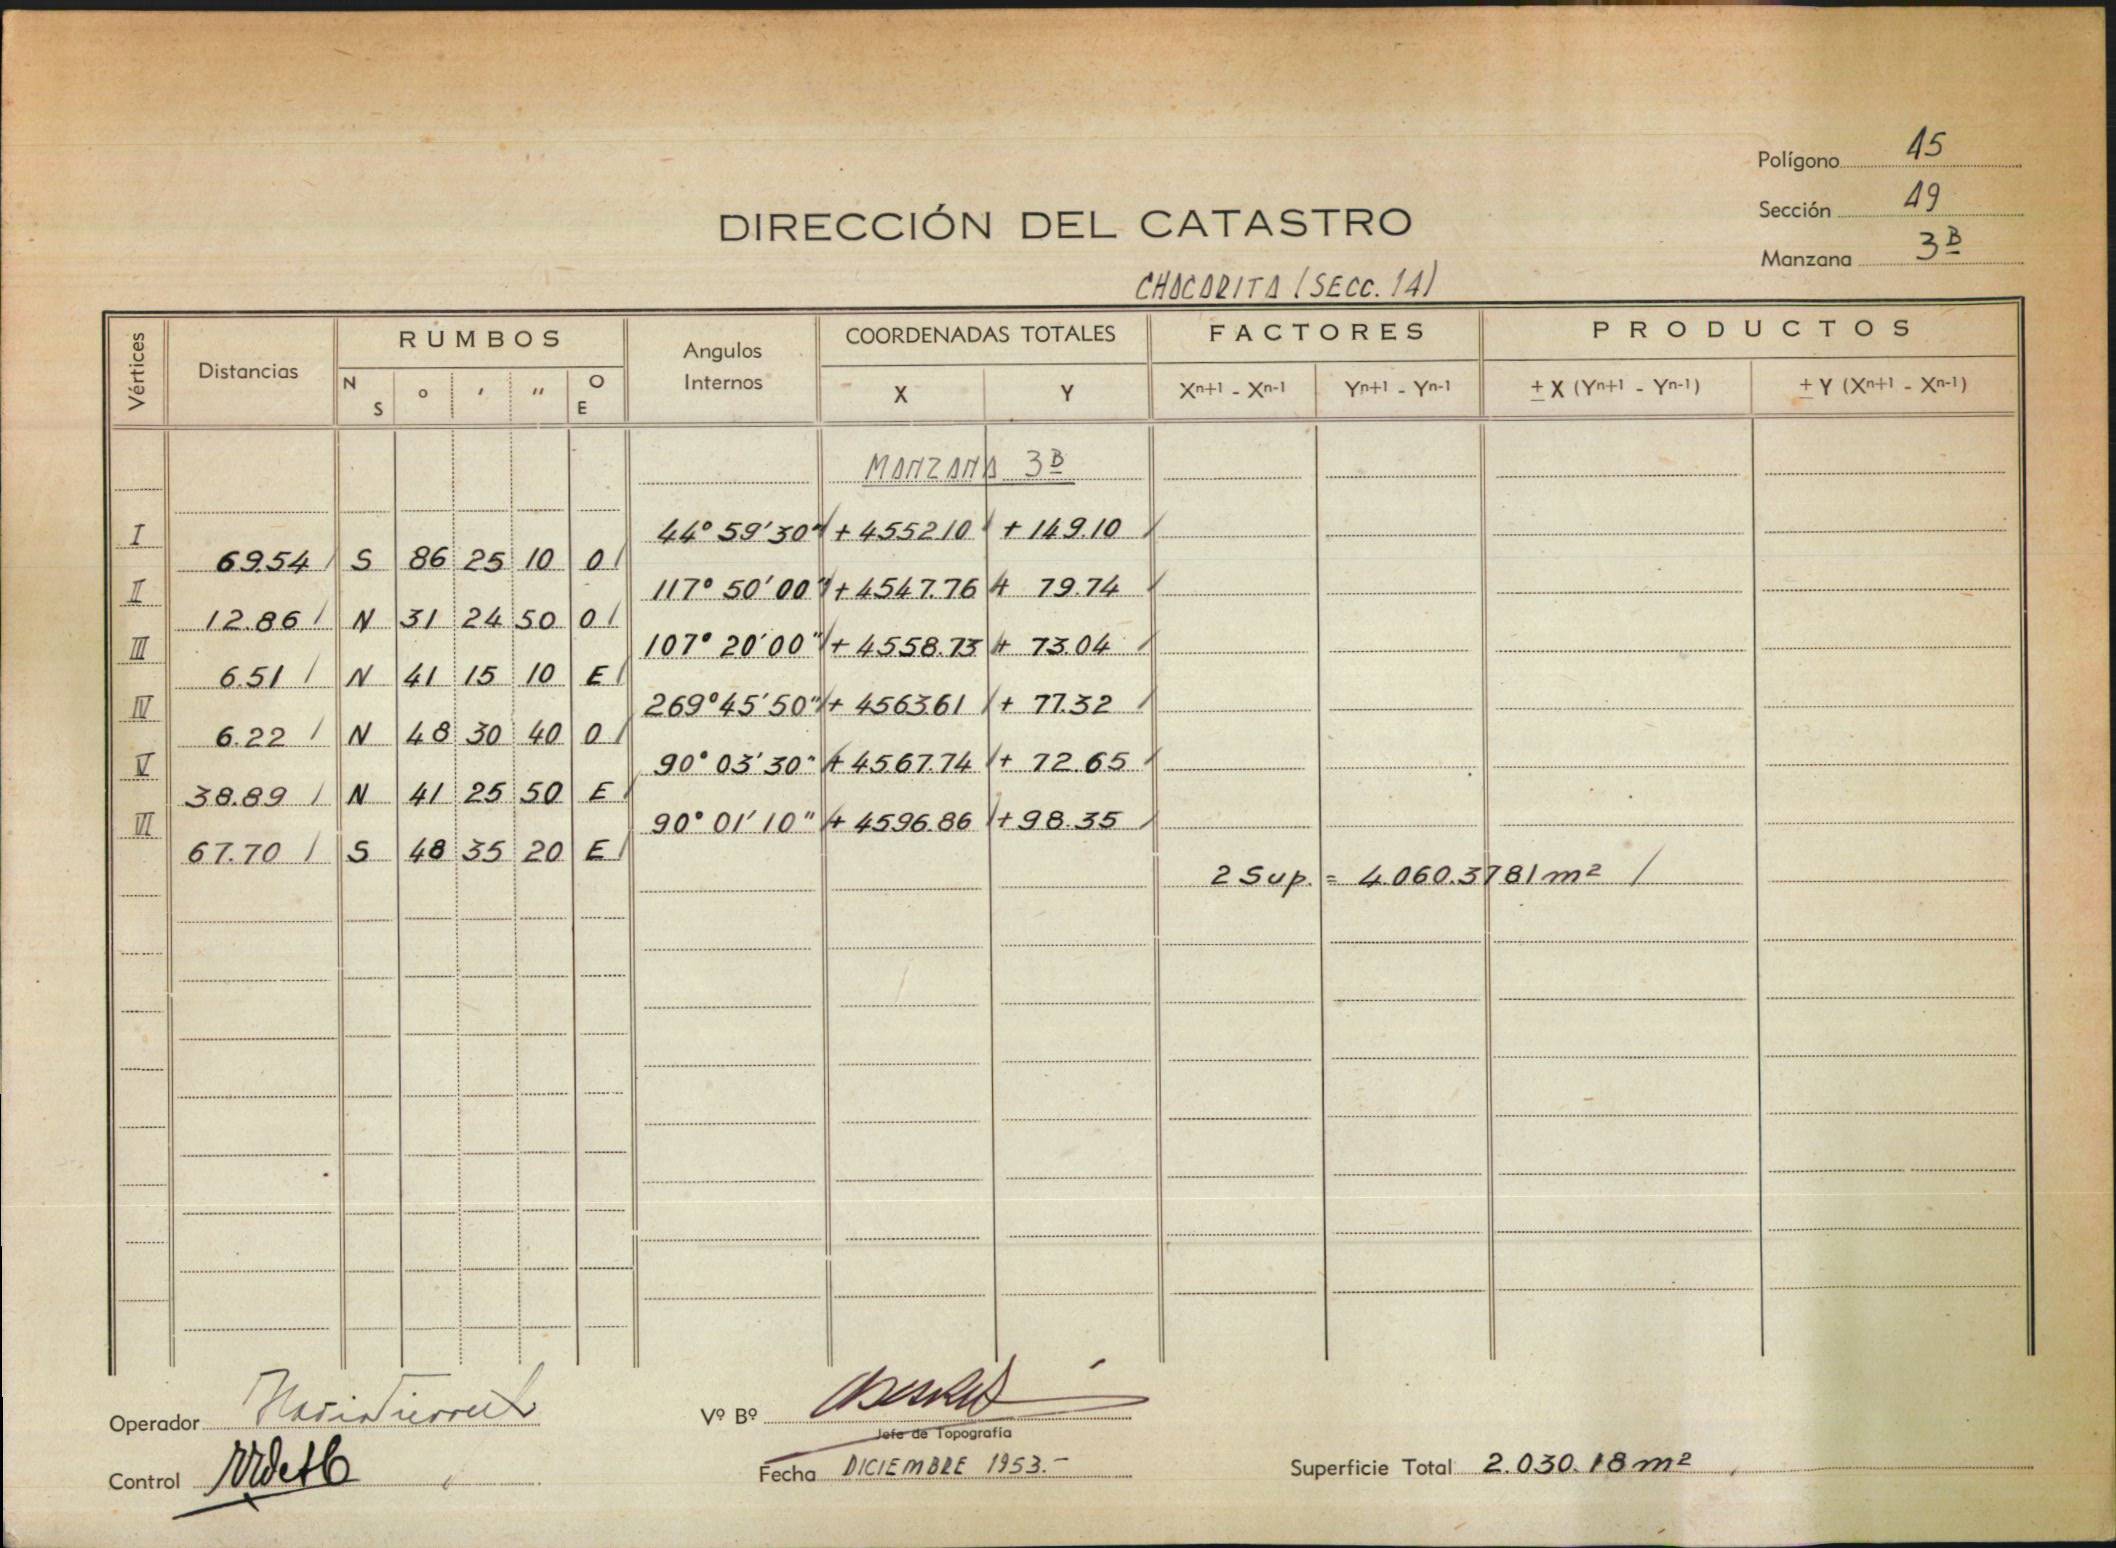 Polígono 15
Sección 19
Manzana 3B
DIRECCIÓN DEL CATASTRO
CHACARITA (SECC. 14)
Vértices Distancias RUMBOS Angulos Internos COORDENADAS TOTALES FACTORES PRODUCTOS
N S ° ' " O E X Y Xn+1 - Xn-1 Yn+1 - Yn-1 ± X (Yn+1 - Yn-1) ± Y (Xn+1 - Xn-1)
MANZANA 3B
I 44° 59' 30" + 4552.10 + 149.10
69.54 S 86 25 10 O
II 117° 50' 00" + 4547.76 + 79.74
12.86 N 31 24 50 O
III 107° 20' 00" + 4558.73 + 73.04
6.51 N 41 15 10 E
IV 269° 45' 50" + 4563.61 + 77.32
6.22 N 48 30 40 O
V 90° 03' 30" + 4567.74 + 72.65
38.89 N 41 25 50 E
VI 90° 01' 10" + 4596.86 + 98.35
67.70 S 48 35 20 E
2 Sup. = 4.060.3781 m²
Operador
Vº Bº
Jefe de Topografía
Control
Fecha DICIEMBRE 1953.-
Superficie Total 2.030.18 m²